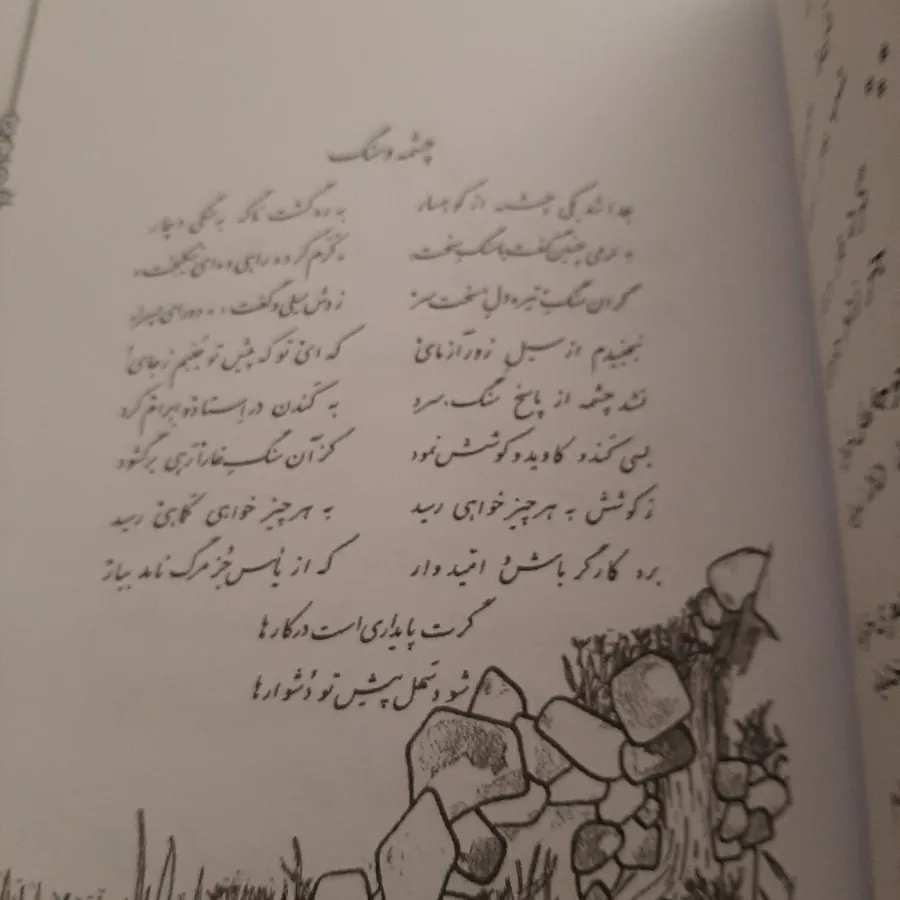 چشمه و سنگ
جدا شد یکی چشمه از کوهسار به ره گشت ناگه به سنگی دچار
به نرمی چنین گفت با سنگ سخت کرم کرده راهی ده ای نیکبخت
گران سنگ تیره دل سخت سر زدش سیلی و گفت دور ای پسر
نجنبیدم از سیل زورآزمای که ای تو که پیش تو جنبم ز جای
نشد چشمه از پاسخ سنگ سرد به کندن در استاد و ابرام کرد
بسی کند و کاوید و کوشش نمود کز آن سنگ خارا رهی برگشود
ز کوشش به هر چیز خواهی رسید به هر چیز خواهی کماهی رسید
برو کارگر باش و امیدوار که از یأس جز مرگ ناید ببار
گرت پایداری است در کارها
شود سهل پیش تو دشوارها